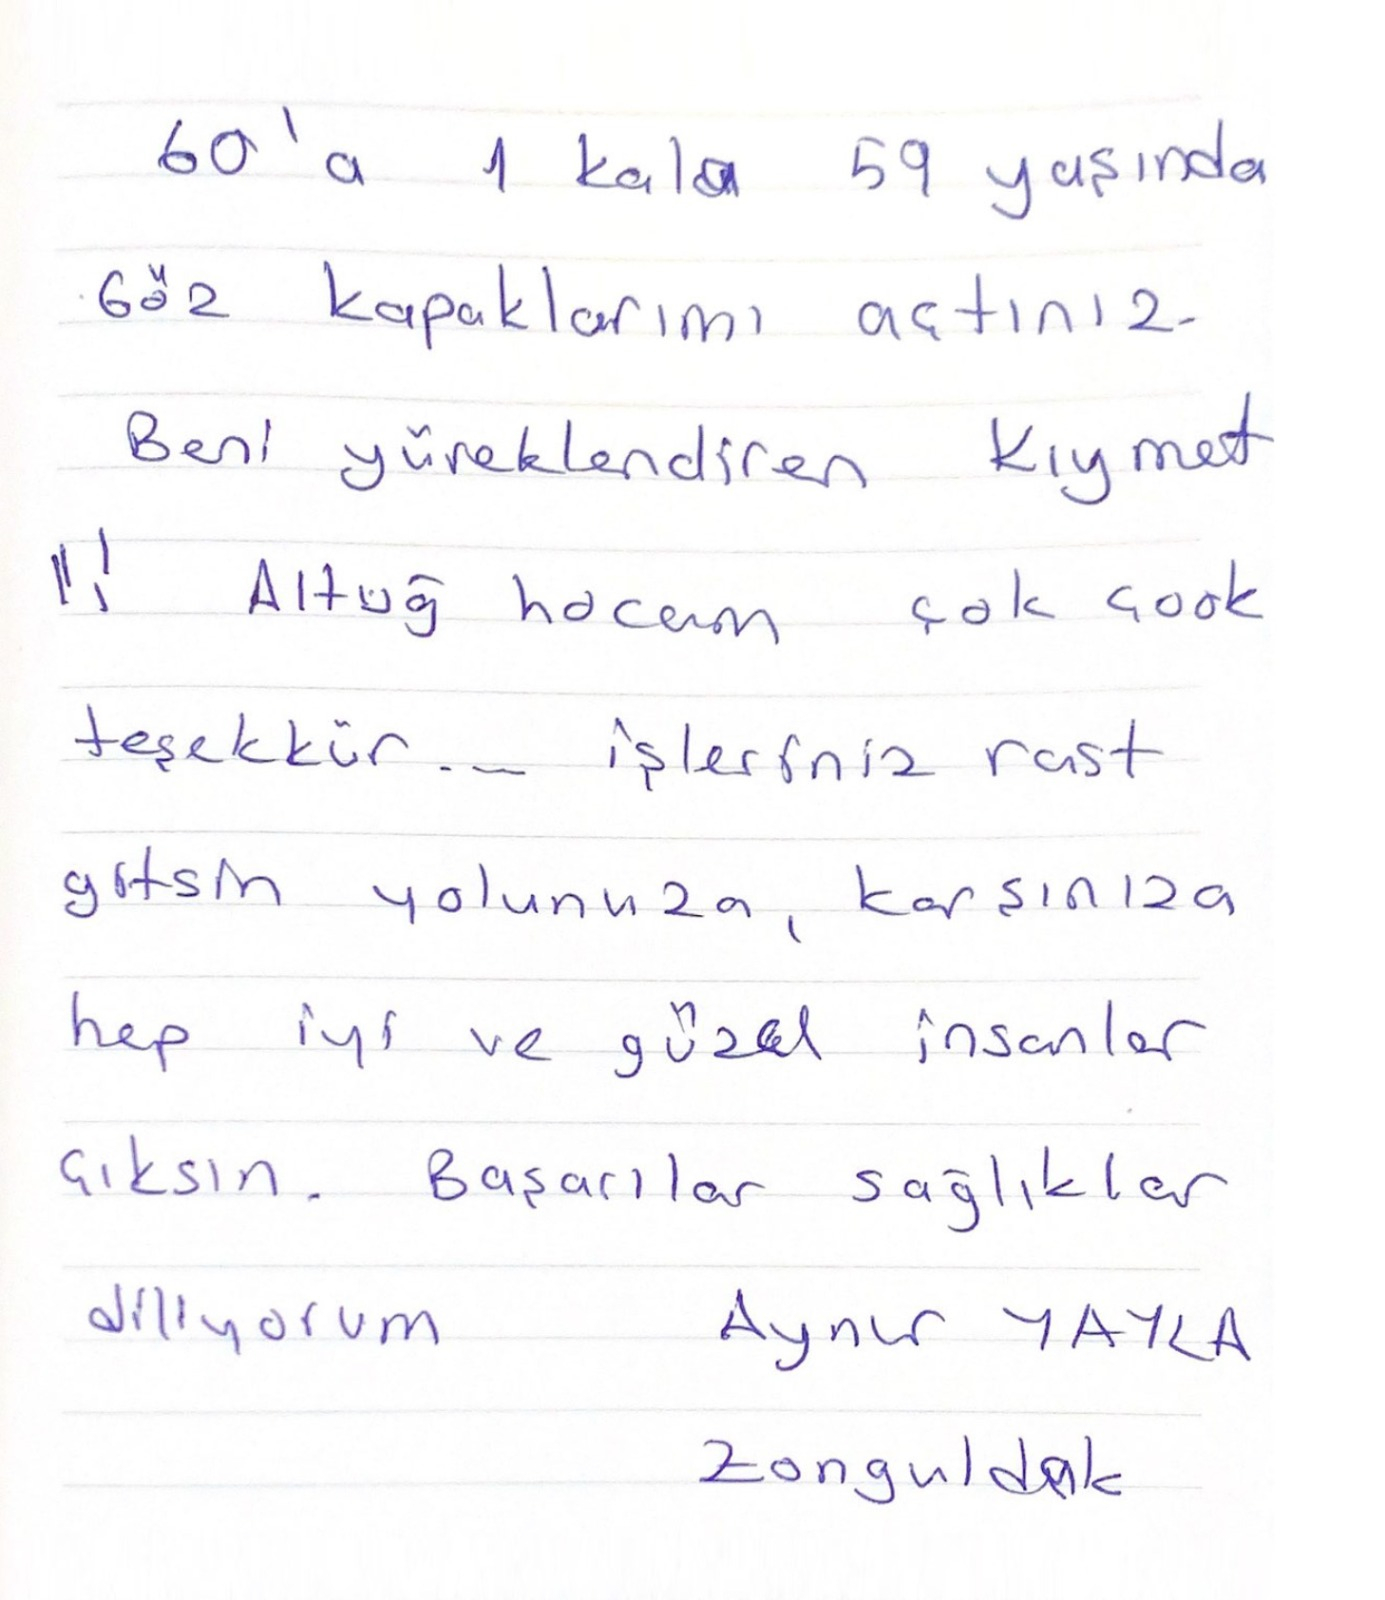 60'a 1 kala 59 yaşında
Göz kapaklarımı açtınız.
Beni yüreklendiren Kıymet
!! Altuğ hocam çok çook
teşekkür... işleriniz rast
gitsin yolunuza, karşınıza
hep iyi ve güzel insanlar
çıksın. Başarılar sağlıklar
diliyorum Aynur YAYLA
Zonguldak